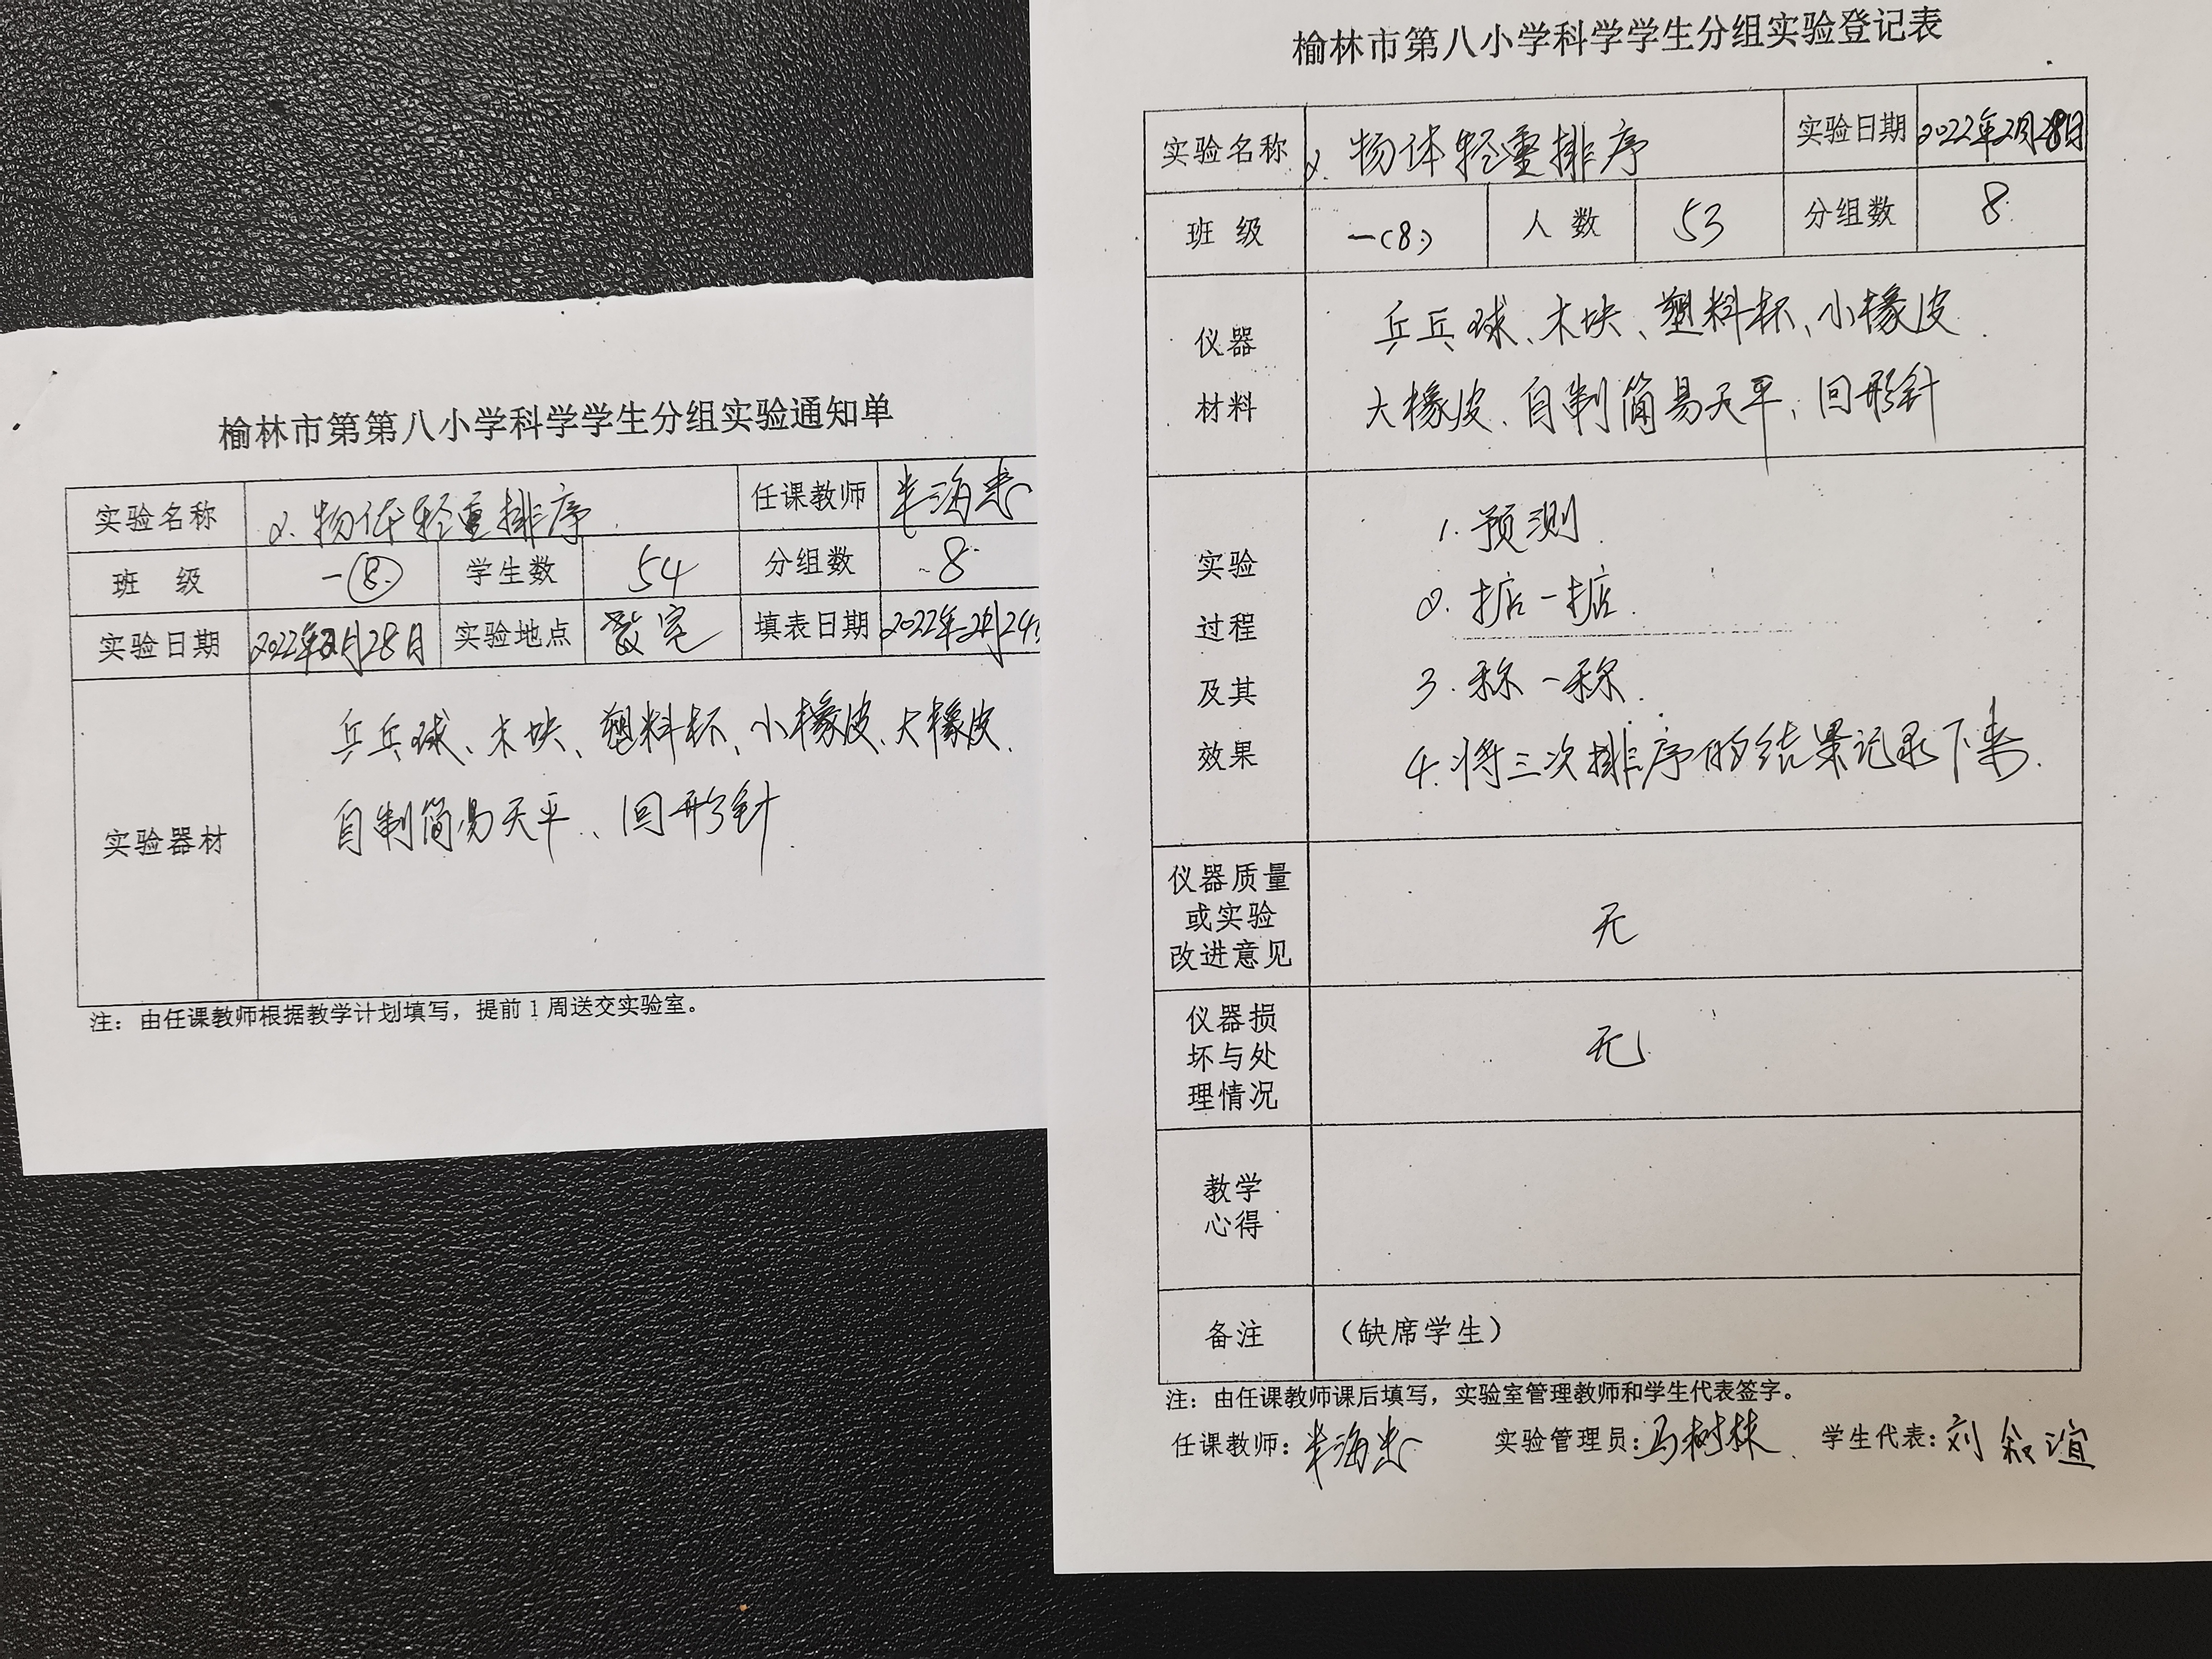 榆林市第第八小学科学学生分组实验通知单
实验名称 2.物体轻重排序 任课教师 海忠
班 级 一(8) 学生数 54 分组数 8
实验日期 2022年2月28日 实验地点 教室 填表日期 2022年2月24
实验器材
乒乓球、木块、塑料杯、小橡皮、大橡皮、
自制简易天平、回形针
注：由任课教师根据教学计划填写，提前1周送交实验室。
榆林市第八小学科学学生分组实验登记表
实验名称 2.物体轻重排序 实验日期 2022年2月28日
班 级 一(8) 人 数 53 分组数 8
仪器
材料
乒乓球、木块、塑料杯、小橡皮
大橡皮、自制简易天平、回形针
实验
过程
及其
效果
1.预测
2.掂一掂
3.称一称
4.将三次排序的结果记录下来.
仪器质量
或实验
改进意见
无
仪器损
坏与处
理情况
无
教学
心得
备注 （缺席学生）
注：由任课教师课后填写，实验室管理教师和学生代表签字。
任课教师：海忠 实验管理员：马树林 学生代表：刘叙谊